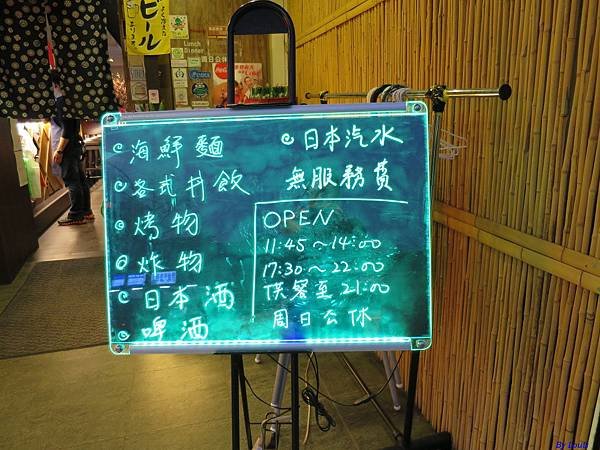 ビール
Lunch
Dinner
海鮮麵
各式丼飲
烤物
炸物
日本酒
啤酒
日本汽水
無服務費
OPEN
11:45～14:00
17:30～22:00
供餐至21:00
周日公休
By Boubi